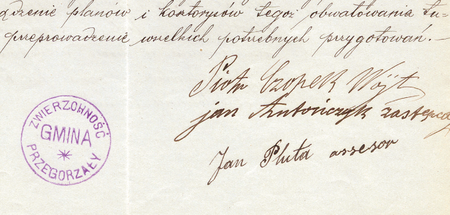 dzenie planów i kosztorysów tego obwałowania tu-
przeprowadzenie wszelkich potrzebnych przygotowań.—
Piotr Czopek Wójt
jan Antończyk zastępca
Jan Pluta assesor
ZWIERZCHNOŚĆ
GMINA
PRZEGORZAŁY